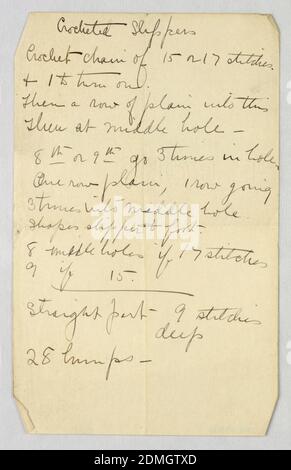 Crocheted Slippers
Crochet chain of 15 or 17 stitches.
& 1 to turn on.
Then a row of plain into this
Then at middle hole —
8th or 9th go 3 times in hole
One row plain, 1 row going
3 times into middle hole.
Shapes slipper to foot
8 middle holes if 17 stitches
9 if 15.
Straight part 9 stitches
deep
28 bumps —
alamy
Image ID: 2DMGTXD
www.alamy.com